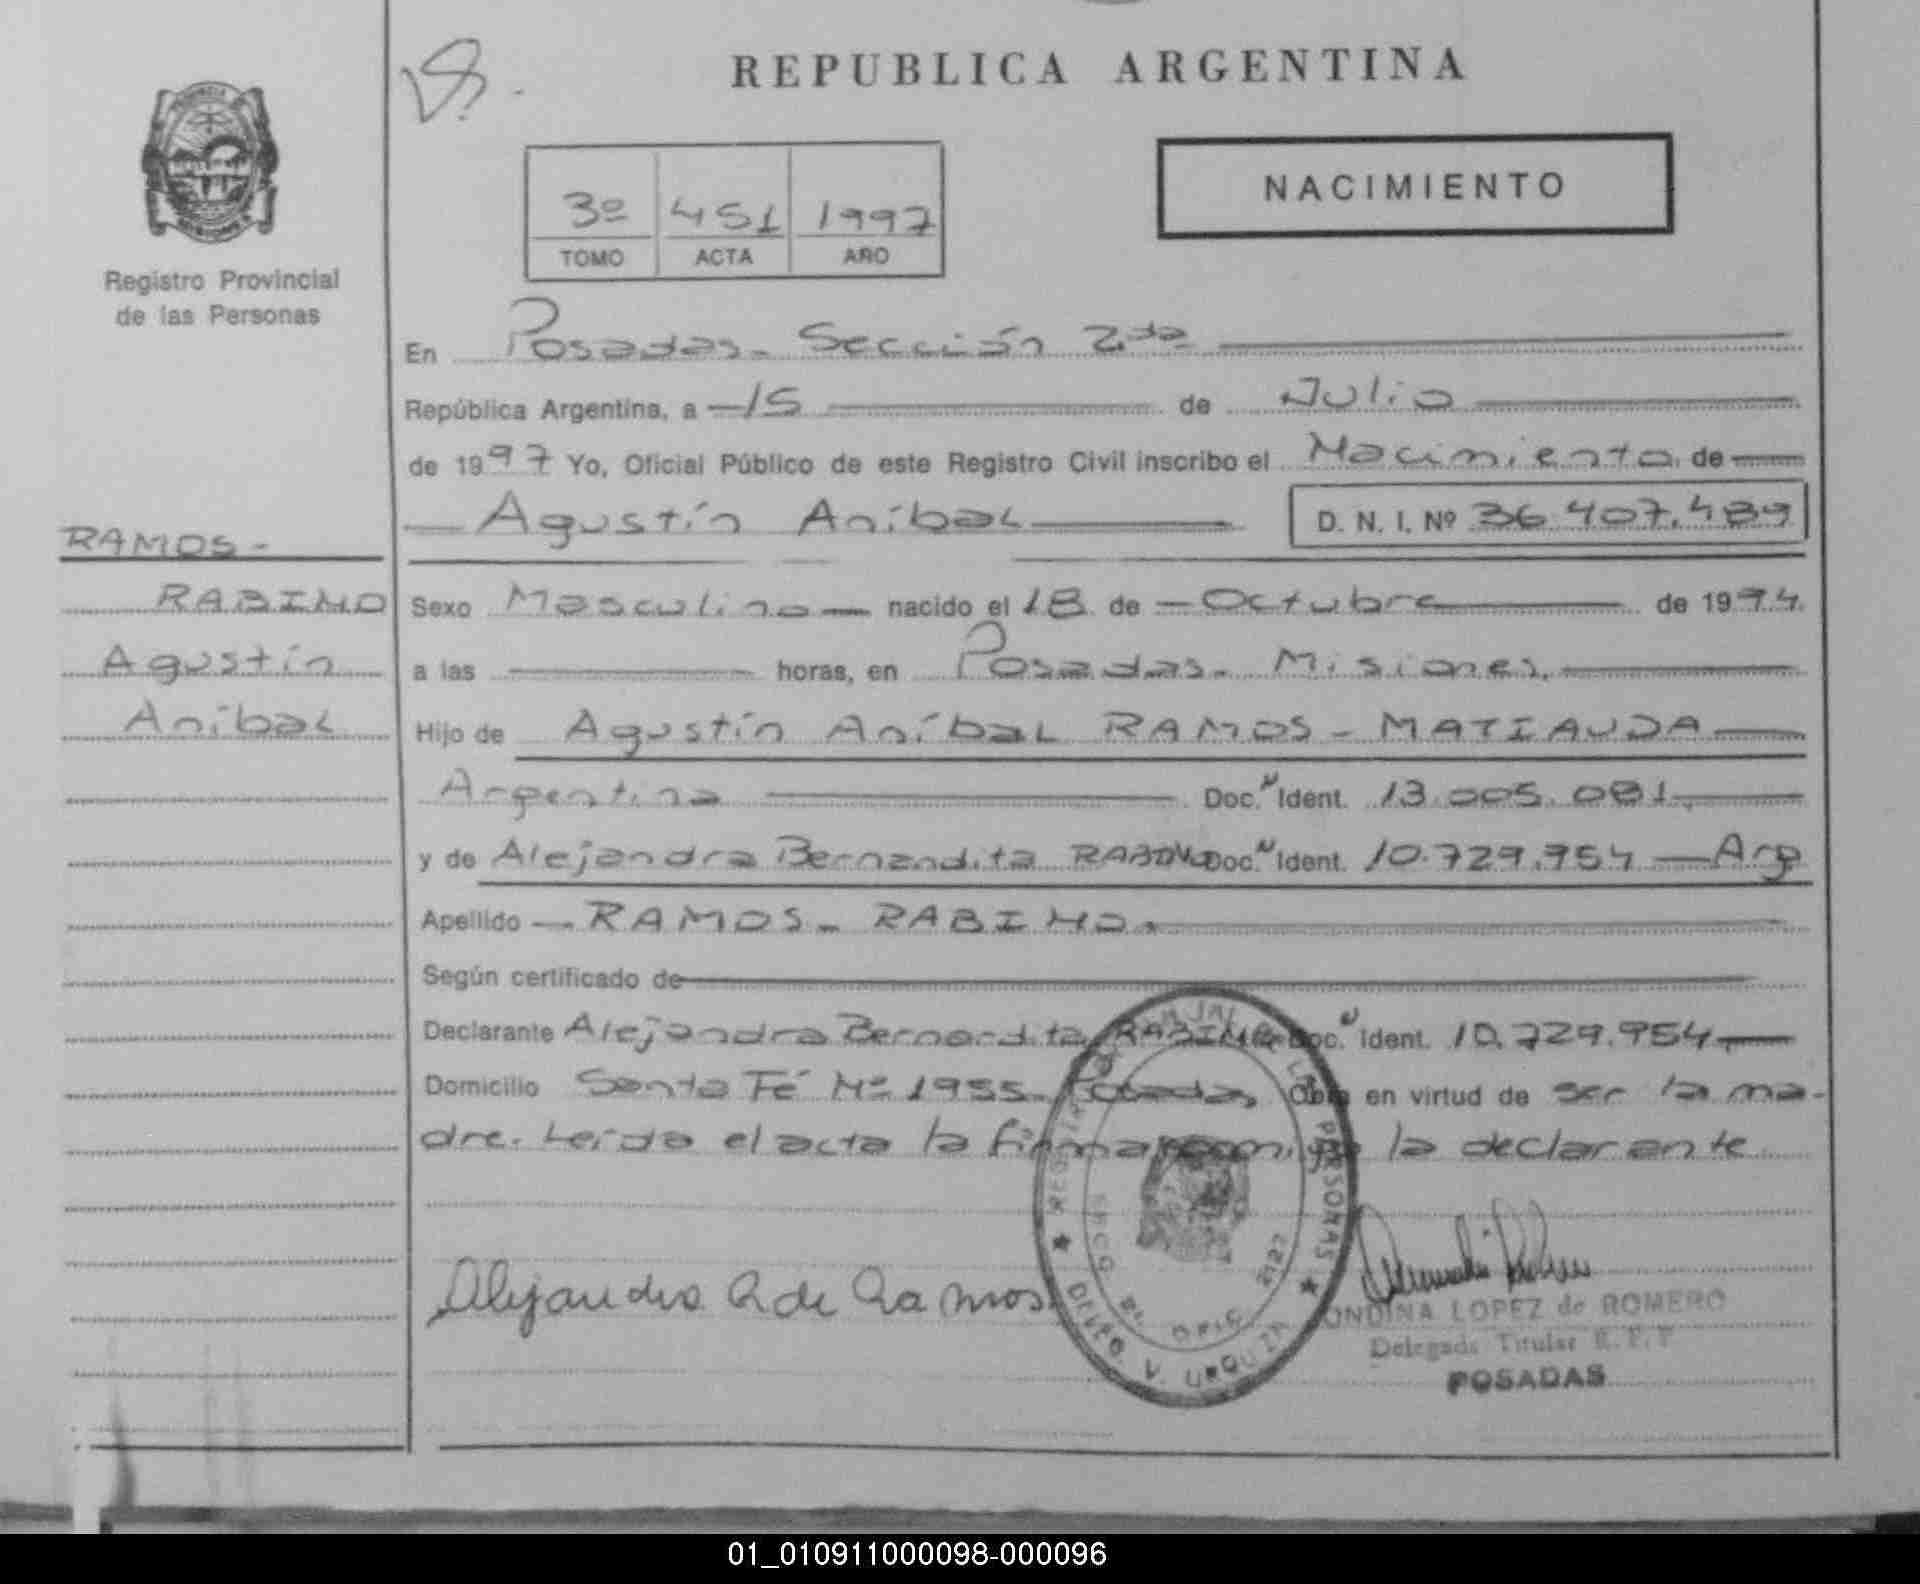 REPUBLICA ARGENTINA
NACIMIENTO
3º 451 1997
TOMO ACTA AÑO
Registro Provincial
de las Personas
En Posadas - Sección 2da
República Argentina, a 15 de Julio
de 1997 Yo, Oficial Público de este Registro Civil inscribo el Nacimiento de
Agustín Aníbal D. N. I. Nº 36.407.489
RAMOS-
RABINO
Agustín
Aníbal
Sexo Masculino nacido el 18 de Octubre de 1994
a las horas, en Posadas - Misiones.
Hijo de Agustín Aníbal RAMOS - MATIAUDA
Argentina Doc. Ident. 13.005.081
y de Alejandra Bernandita RABINO Doc. Ident. 10.729.954 Arg
Apellido RAMOS - RABINO.
Según certificado de
Declarante Alejandra Bernardita RABINO Doc. Ident. 10.729.954
Domicilio Santa Fé Nº 1955 - Posadas Obra en virtud de ser la ma-
dre. Leída el acta la firma conmigo la declarante
Alejandra R de Ramos
REGISTRO PERSONAS
V. URQUIZA
ONDINA LOPEZ de ROMERO
Delegada Titular R. P. P
POSADAS
01_010911000098-000096